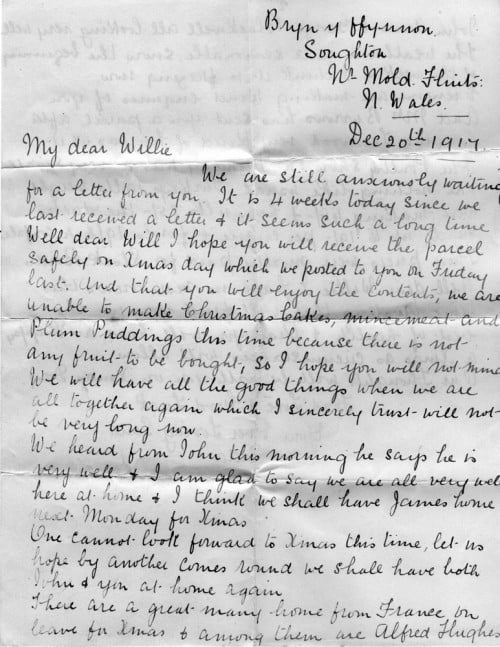 Bryn y ffynnon
Soughton
Nr Mold. Flints:
N. Wales.
Dec 20th 1917.
My dear Willie
We are still anxiously waiting
for a letter from you. It is 4 weeks today since we
last received a letter & it seems such a long time
Well dear Will I hope you will receive the parcel
safely on Xmas day which we posted to you on Friday
last. And that you will enjoy the contents, we are
unable to make Christmas Cakes, mincemeat and
Plum Puddings this time because there is not
any fruit to be bought, so I hope you will not mind
We will have all the good things when we are
all together again which I sincerely trust will not
be very long now.
We heard from John this morning he says he is
very well & I am glad to say we are all very well
here at home & I think we shall have James home
next Monday for Xmas
One cannot look forward to Xmas this time, let us
hope by another comes round we shall have both
John & you at home again
There are a great many home from France on
leave for Xmas & among them are Alfred Hughes